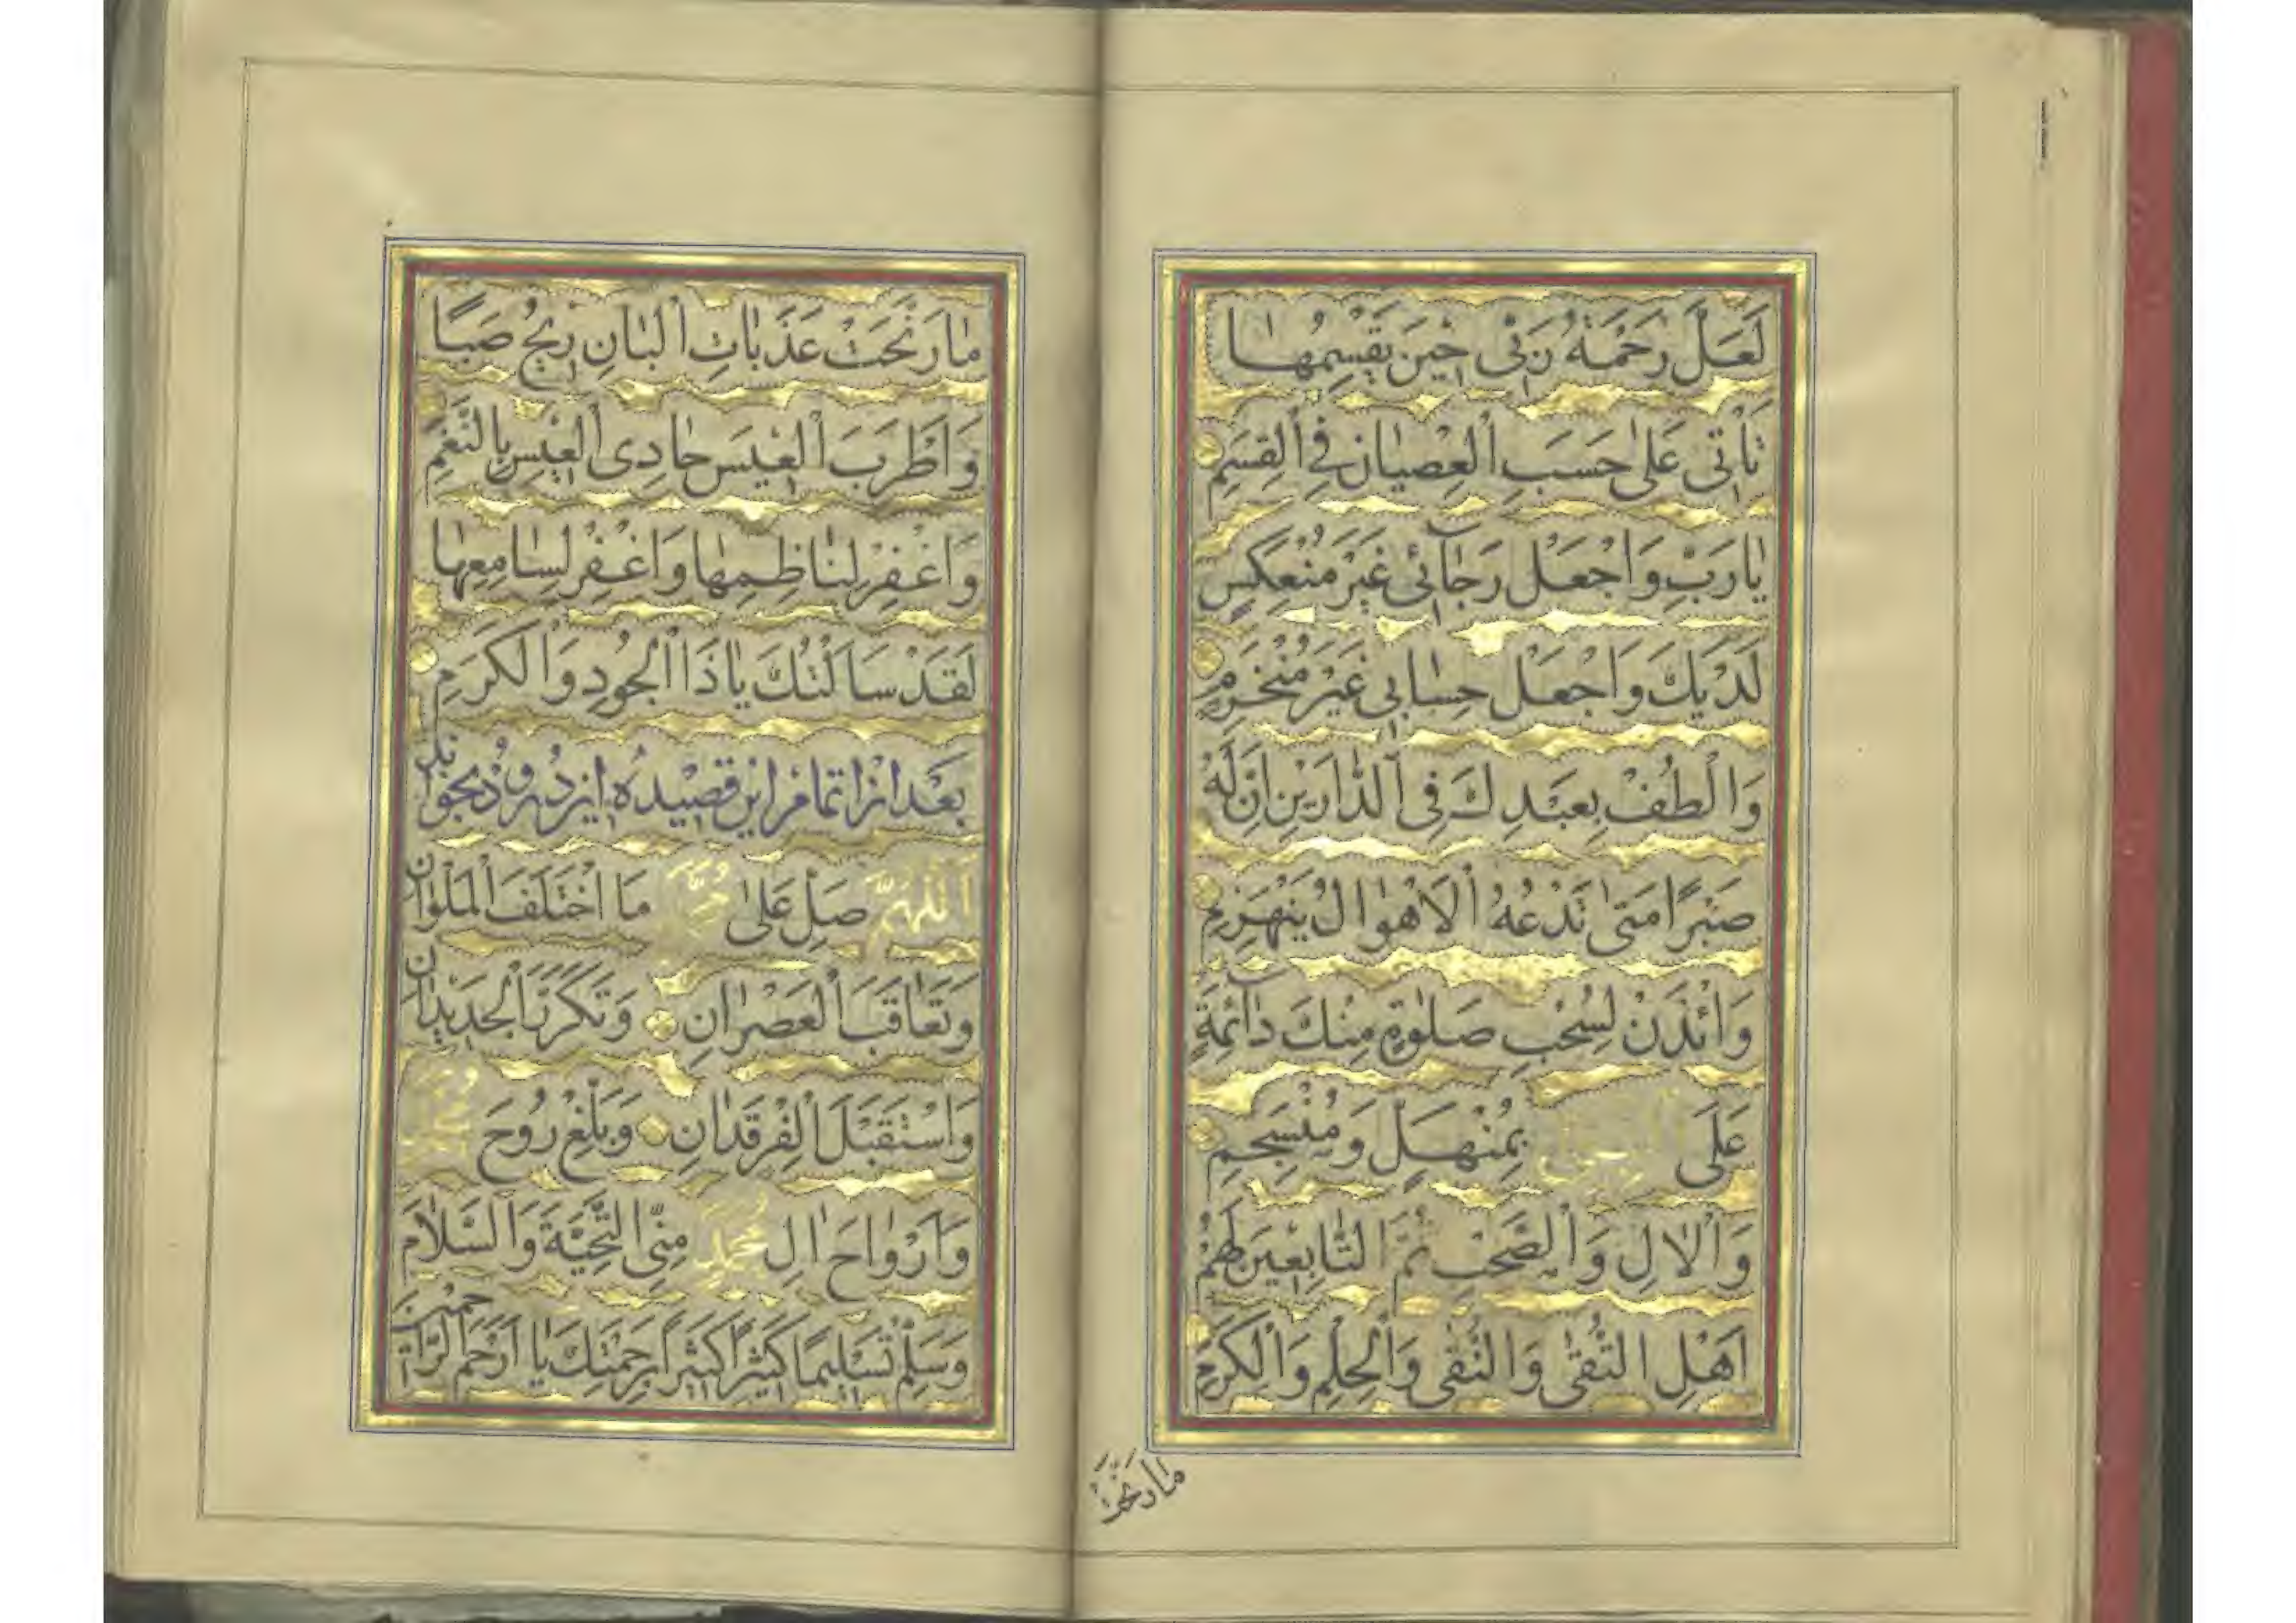 لَعَلَّ رَحْمَةَ رَبّٖى حٖينَ يَقْسِمُهٰا
تَأْتٖى عَلٰى حَسَبِ الْعِصْيٰانِ فِى الْقِسَمِ
يٰا رَبِّ وَاجْعَلْ رَجٰآئٖى غَيْرَ مُنْعَكِسٍ
لَدَيْكَ وَاجْعَلْ حِسٰابٖى غَيْرَ مُنْخَرِمِ
وَالْطُفْ بِعَبْدِكَ فِى الدّٰارَيْنِ اِنَّ لَهُ
صَبْرًا مَتٰى تَدْعُهُ الْاَهْوٰالُ يَنْهَزِمِ
وَائْذَنْ لِسُحْبِ صَلٰوةٍ مِنْكَ دٰآئِمَةٍ
عَلَى بِمُنْهَلٍّ وَمُنْسَجِمِ
وَالْاٰلِ وَالصَّحْبِ ثُمَّ التّٰابِعٖينَ لَهُمْ
اَهْلِ التُّقٰى وَالنُّقٰى وَالْحِلْمِ وَالْكَرَمِ
مٰا رَنَّحَتْ
مٰا رَنَّحَتْ عَذَبٰاتِ الْبٰانِ رٖيحُ صَبًا
وَاَطْرَبَ الْعٖيسَ حٰادِى الْعٖيسِ بِالنَّغَمِ
وَاغْفِرْ لِنٰاظِمِهٰا وَاغْفِرْ لِسٰامِعِهٰا
لَقَدْ سَاَلْتُكَ يٰا ذَا الْجُودِ وَالْكَرَمِ
بعد از اتمام اين قصيده اين درود بخواند
اَللّٰهُمَّ صَلِّ عَلٰى مُحَمَّدٍ مَا اخْتَلَفَ الْمَلَوٰانِ
وَتَعٰاقَبَ الْعَصْرٰانِ وَتَكَرَّرَ الْجَدٖيدٰانِ
وَاسْتَقْبَلَ الْفَرْقَدٰانِ وَبَلِّغْ رُوحَ مُحَمَّدٍ
وَاَرْوٰاحَ اٰلِ مُحَمَّدٍ مِنِّى التَّحِيَّةَ وَالسَّلٰامَ
وَسَلِّمْ تَسْلٖيمًا كَثٖيرًا كَثٖيرًا بِرَحْمَتِكَ يٰا اَرْحَمَ الرّٰاحِمٖينَ